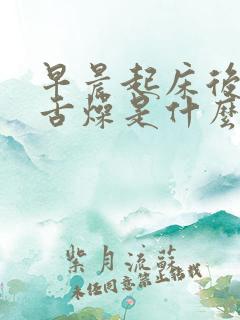 早晨起床後
舌燥是什麼
紫月流蘇
未经同意禁止搭载